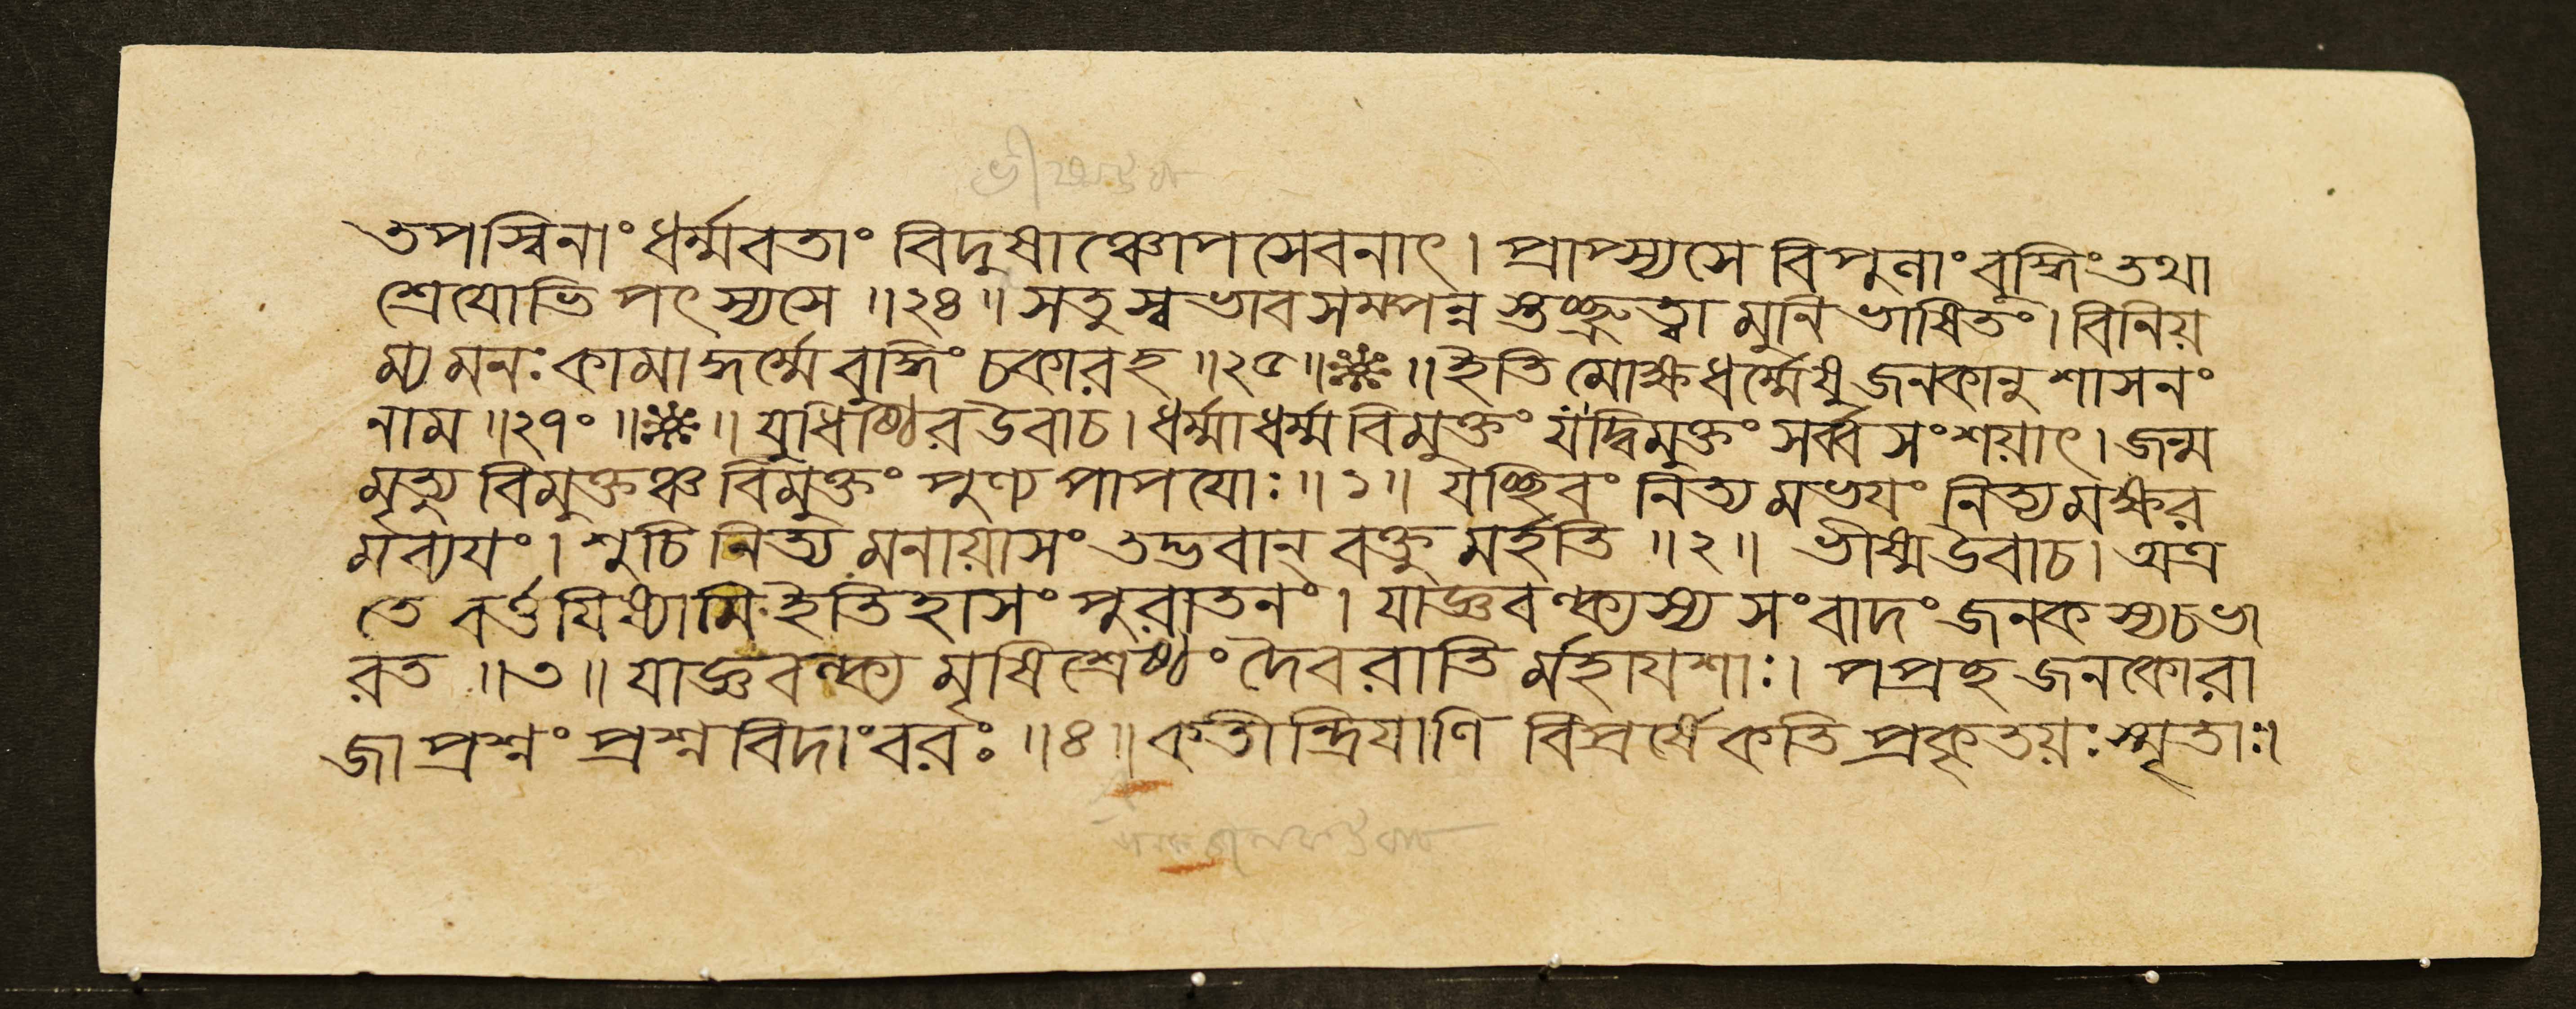 তপস্বিনাং ধর্ম্মবতাং বিদুষাঞ্চোপসেবনাৎ। প্রাপ্স্যসে বিপুলাং বুদ্ধিং তথা
শ্রেযোভিপৎস্যসে ॥২৪॥ সতু স্বভাবসম্পন্নস্তচ্ছ্রুত্বা মুনিভাষিতং। বিনিয়
ম্য মনঃ কামাদ্ধর্ম্মে বুদ্ধিং চকারহ ॥২৫॥ ॥ ইতি মোক্ষধর্ম্মেষু জনকানুশাসনং
নাম ॥২৭০॥ ॥ যুধিষ্ঠির উবাচ। ধর্ম্মাধর্ম্মবিমুক্তং যদ্বিমুক্তং সর্ব্বসংশয়াৎ। জন্ম
মৃত্যুবিমুক্তঞ্চ বিমুক্তং পুণ্যপাপযোঃ ॥১॥ যচ্ছিবং নিত্যমভযং নিত্যমক্ষর
মব্যযং। শুচি নিত্যমনায়াসং তদ্ভবান্ বক্তুমর্হতি ॥২॥ ভীষ্ম উবাচ। অত্র
তে বর্ত্তযিষ্যামি ইতিহাসং পুরাতনং। যাজ্ঞবল্ক্যস্য সংবাদং জনকস্যচ ভা
রত ॥৩॥ যাজ্ঞবল্ক্যমৃষিশ্রেষ্ঠং দৈবরাতির্মহাযশাঃ। পপ্রছ জনকোরা
জা প্রশ্নং প্রশ্নবিদাং বরঃ ॥৪॥ কতীন্দ্রিযাণি বিপ্রর্ষে কতি প্রকৃতয়ঃ স্মৃতাঃ।